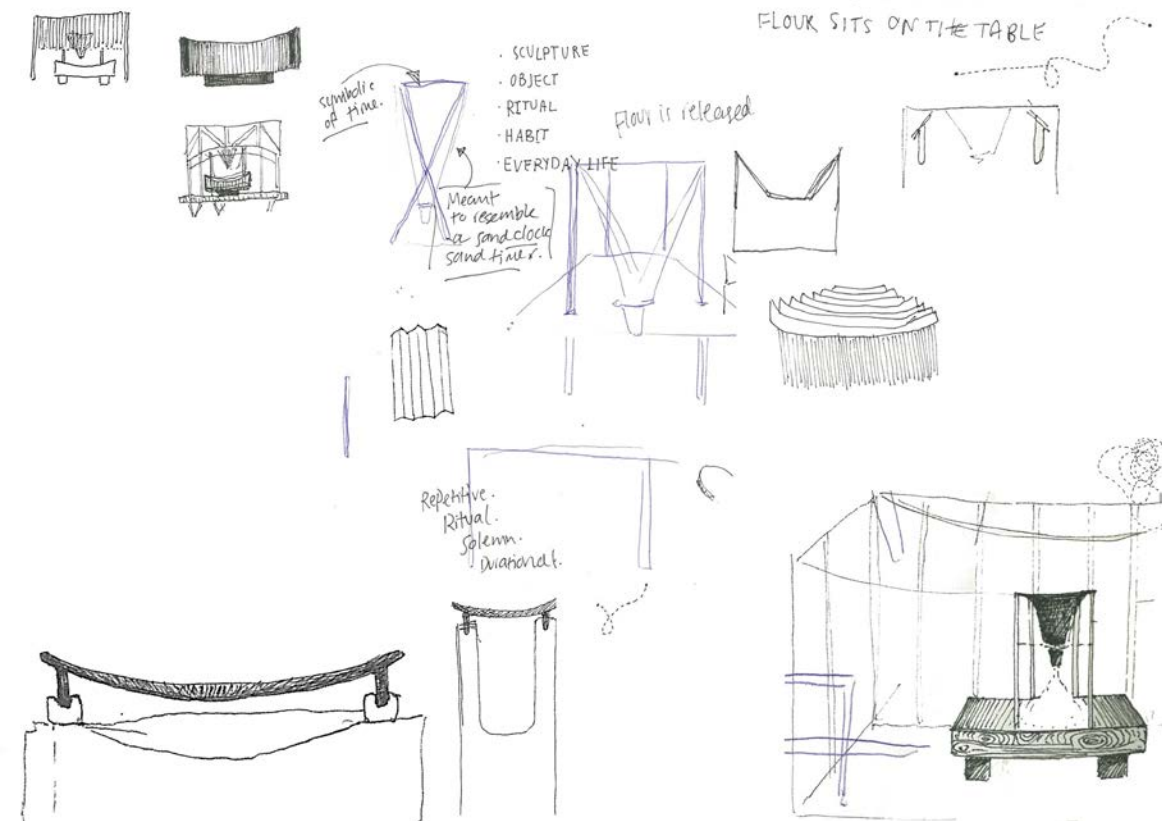 FLOUR SITS ON THE TABLE
· SCULPTURE
· OBJECT
· RITUAL
· HABIT
· EVERYDAY LIFE
symbolic
of time.
Flour is released
Meant
to resemble
a sand clock
sand timer.
Repetitive.
Ritual.
Solemn.
Durational.